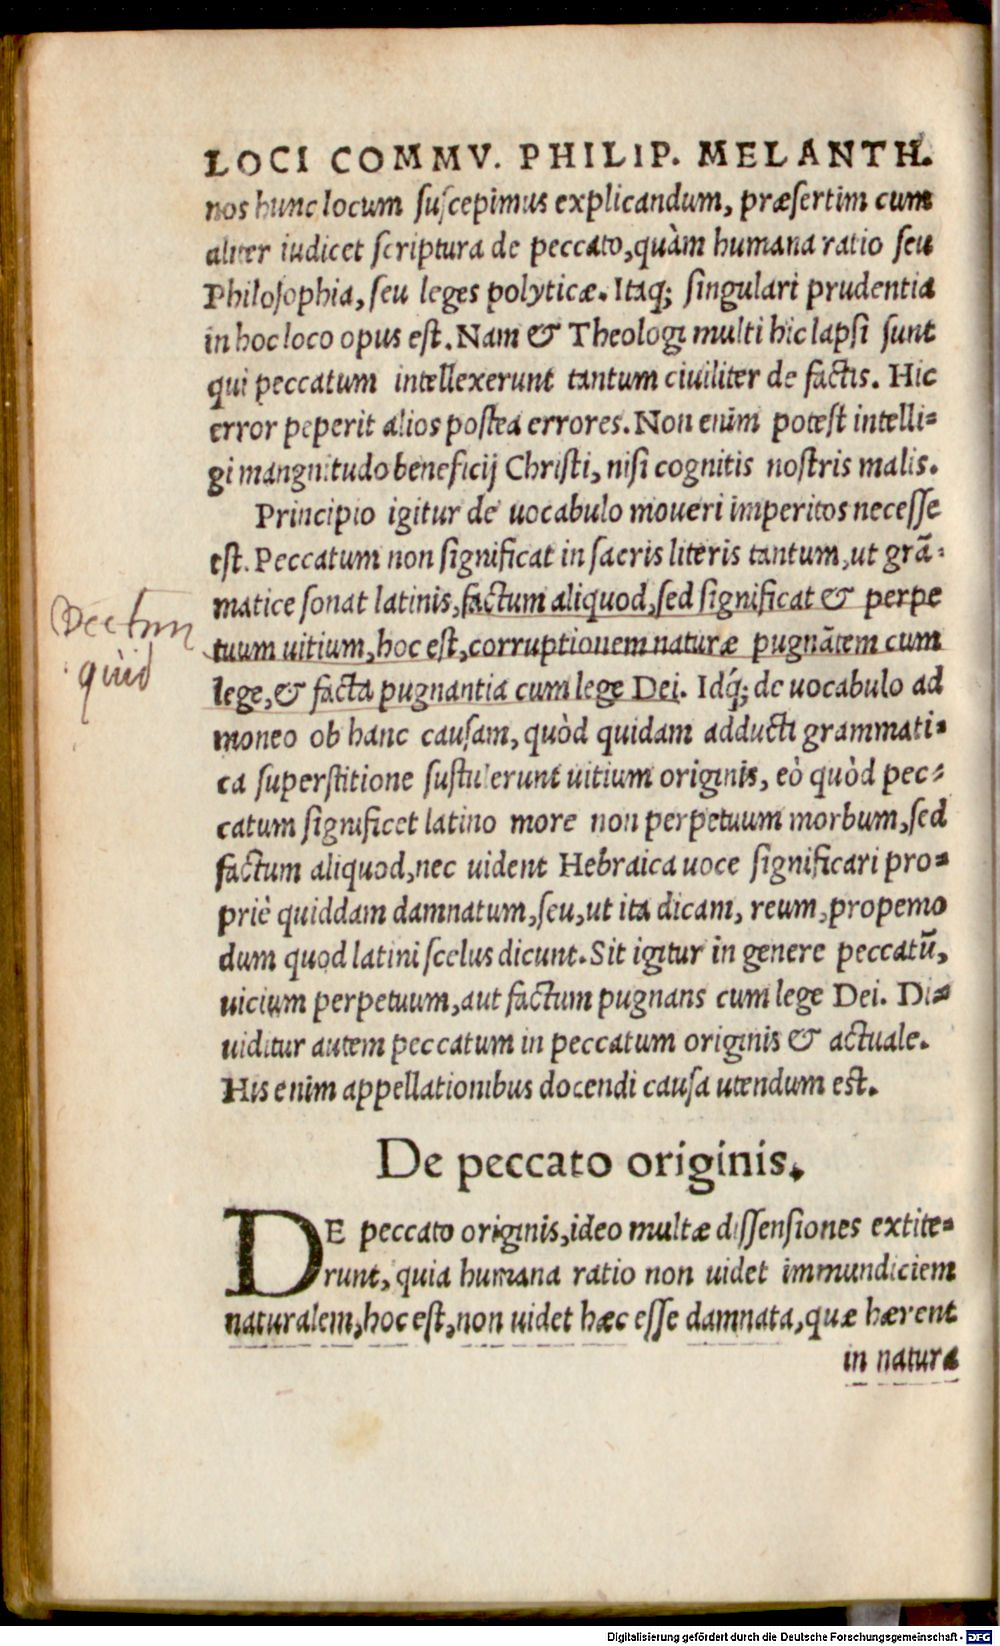 LOCI COMMV. PHILIP. MELANTH.
nos hunc locum suscepimus explicandum, præsertim cum
aliter iudicet scriptura de peccato, quàm humana ratio seu
Philosophia, seu leges polyticæ. Itaq; singulari prudentia
in hoc loco opus est. Nam & Theologi multi hic lapsi sunt
qui peccatum intellexerunt tantum ciuiliter de factis. Hic
error peperit alios postea errores. Non enim potest intelli-
gi mangnitudo beneficij Christi, nisi cognitis nostris malis.
Principio igitur de uocabulo moueri imperitos necesse
est. Peccatum non significat in sacris literis tantum, ut grã-
matice sonat latinis, factum aliquod, sed significat & perpe
tuum uitium, hoc est, corruptionem naturæ pugnãtem cum
lege, & facta pugnantia cum lege Dei. Idq́; de uocabulo ad
moneo ob hanc causam, quòd quidam adducti grammati-
ca superstitione sustulerunt uitium originis, eò quòd pec-
catum significet latino more non perpetuum morbum, sed
factum aliquod, nec uident Hebraica uoce significari pro-
priè quiddam damnatum, seu, ut ita dicam, reum, propemo
dum quod latini scelus dicunt. Sit igitur in genere peccatũ,
uicium perpetuum, aut factum pugnans cum lege Dei. Di-
uiditur autem peccatum in peccatum originis & actuale.
His enim appellationibus docendi causa utendum est.
quid
De peccato originis.
DE peccato originis, ideo multæ dissensiones extite-
runt, quia humana ratio non uidet immundiciem
naturalem, hoc est, non uidet hæc esse damnata, quæ hærent
in natura
Digitalisierung gefördert durch die Deutsche Forschungsgemeinschaft - DFG